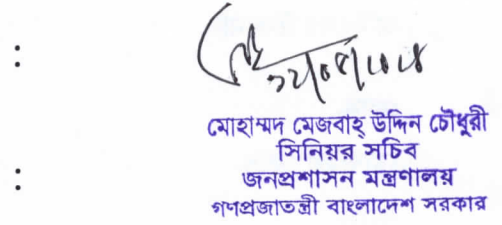 :
মোহাম্মদ মেজবাহ্ উদ্দিন চৌধুরী
সিনিয়র সচিব
জনপ্রশাসন মন্ত্রণালয়
:
গণপ্রজাতন্ত্রী বাংলাদেশ সরকার